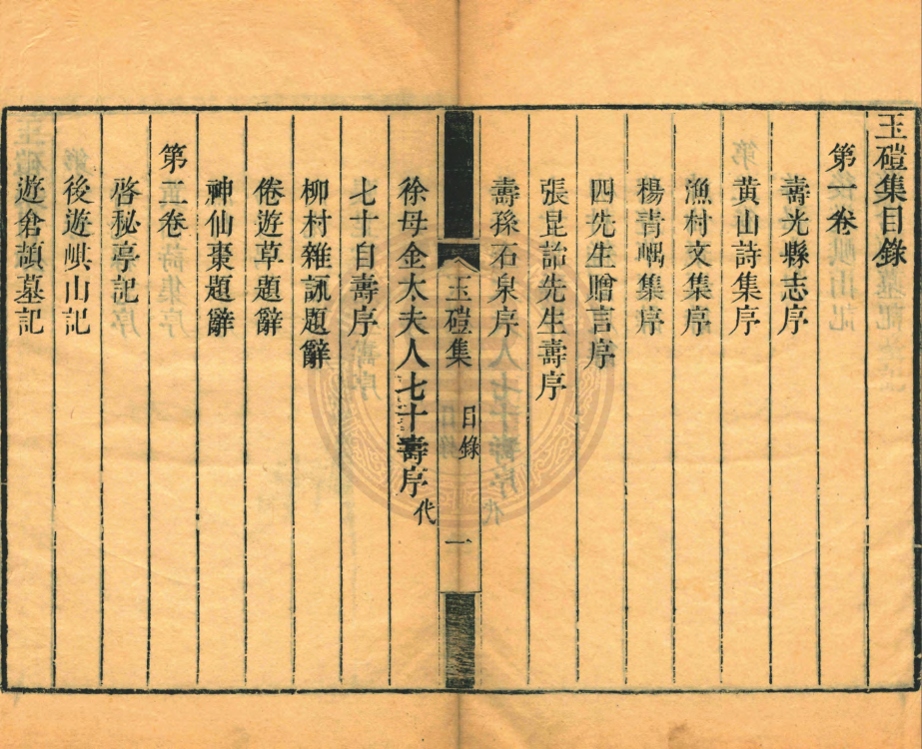 玉磑集目錄
第一卷
壽光縣志序
黃山詩集序
漁村文集序
楊青嵎集序
四先生贈言序
張昆詒先生壽序
壽孫石泉序
玉磑集 目錄 一
徐母金太夫人七十壽序代
七十自壽序
柳村雜詠題辭
倦遊草題辭
神仙棗題辭
第二卷
啓秘亭記
後遊㟚山記
遊倉頡墓記